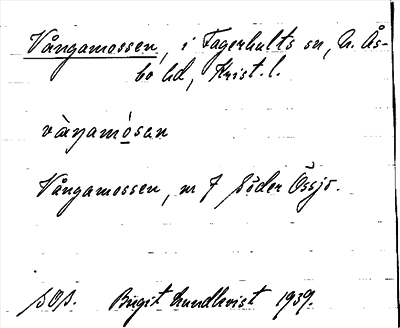 Vångamossen, i Fagerhults sn, N. Ås-
bo hd, Krist. l.
våŋamósen
Vångamossen, nr 7 Söder Össjö.
SOS. Birgit Lundkvist 1939.